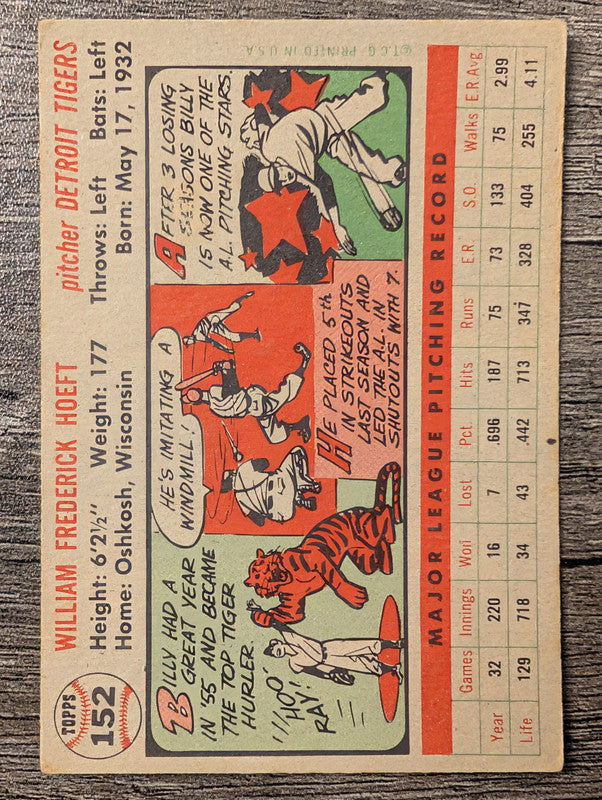 TOPPS
152
WILLIAM FREDERICK HOEFT
pitcher DETROIT TIGERS
Height: 6'2½" Weight: 177 Throws: Left Bats: Left
Home: Oshkosh, Wisconsin Born: May 17, 1932
BILLY HAD A
GREAT YEAR
IN '55 AND BECAME
THE TOP TIGER
HURLER.
'/'/'HOO
RAY!
HE'S IMITATING A
WINDMILL!
HE PLACED 5th
IN STRIKEOUTS
LAST SEASON AND
LED THE A.L. IN
SHUTOUTS WITH 7.
AFTER 3 LOSING
SEASONS BILLY
IS NOW ONE OF THE
A.L. PITCHING STARS.
©T.C.G. PRINTED IN U.S.A.
MAJOR LEAGUE PITCHING RECORD
Games Innings Won Lost Pct. Hits Runs E.R. S.O. Walks E.R.Avg
Year 32 220 16 7 .696 187 75 73 133 75 2.99
Life 129 718 34 43 .442 713 347 328 404 255 4.11